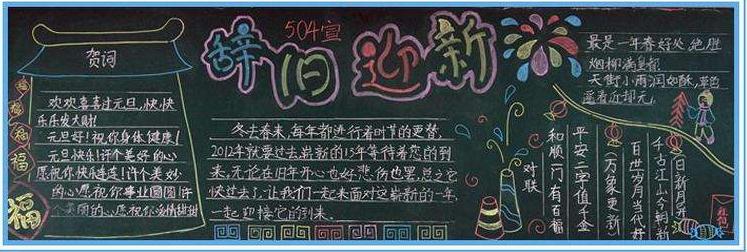 504宣
辞旧迎新
贺词
欢欢喜喜过元旦,快快
乐乐发大财!
元旦好!祝你身体健康!
元旦快乐!许个美好的心
愿祝你快乐连连!许个美妙
的心愿祝你事业圆圆!许
个美丽的心愿祝你爱情甜甜
福
福
福
福
冬去春来,每年都进行着时节的更替,
2012年就要过去崭新的13年等待着您的到
来,无论在旧年开心也好悲伤也罢,总之它
快过去了,让我们一起来面对这崭新的一年,
一起迎接它的到来。
最是一年春好处 绝胜
烟柳满皇都
天街小雨润如酥,草色
遥看近却无.
对联
和顺一门有百福
平安二字值千金
(万象更新)
百世岁月当代好
千古江山今朝新
日新月异